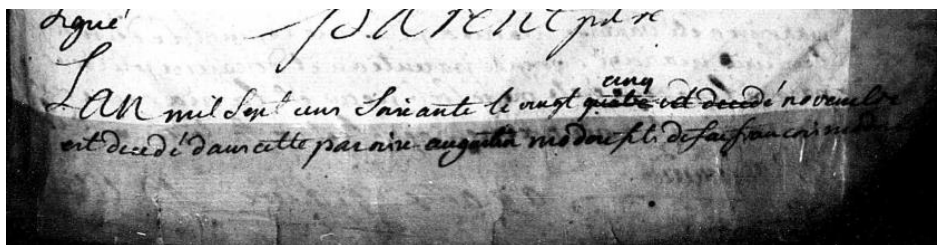 signé
parent ptre
cinq
Lan mil sept cens soixante le vingt quatre est decedé novembre
est decedé dans cette paroisse augustin modou fils de feu francois modou